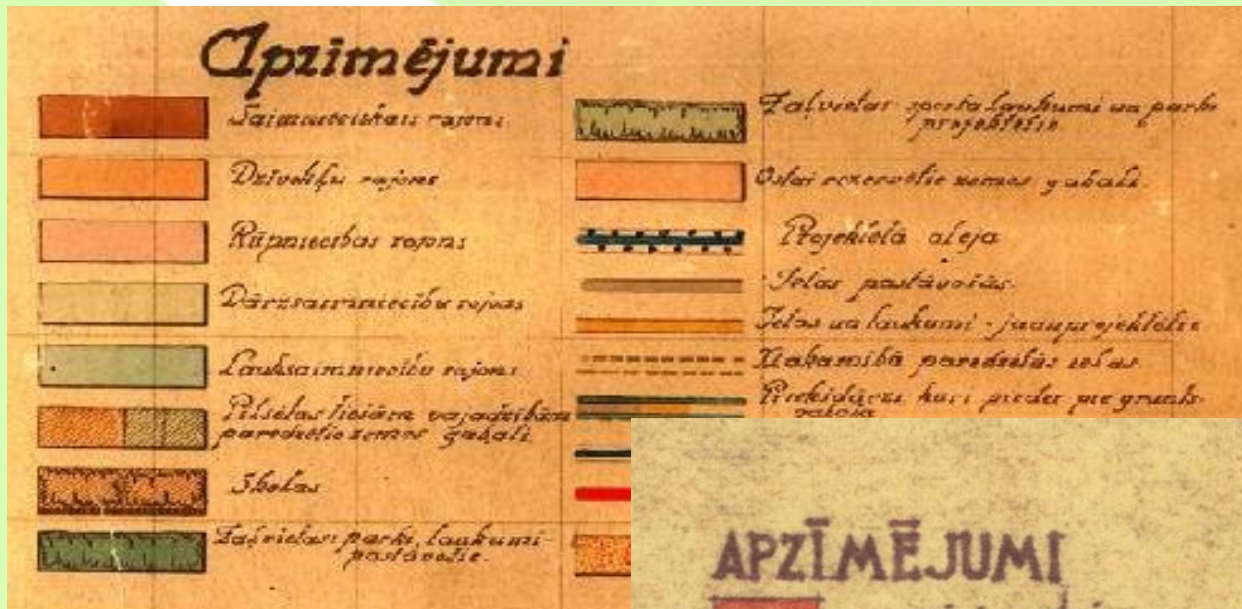 Apzīmējumi
Saimnieciskais rajons
Dzīvokļu rajons
Rūpniecības rajons
Dārzsaimniecību rajons
Lauksaimniecību rajons
Pilsētas tiešām vajadzībām
paredzētie zemes gabali
Skolas
Zaļvietas: parki, laukumi -
pastāvošie.
Zaļvietas sporta laukumi un parki
projektētie
Ostai rezervētie zemes gabali.
Projektētā aleja
Ielas pastāvošās.
Ielas un laukumi - jaunprojektētie
Nākamībā paredzētās ielas
Priekšdārzi kuri pieder pie grunts-
gabala
APZĪMĒJUMI